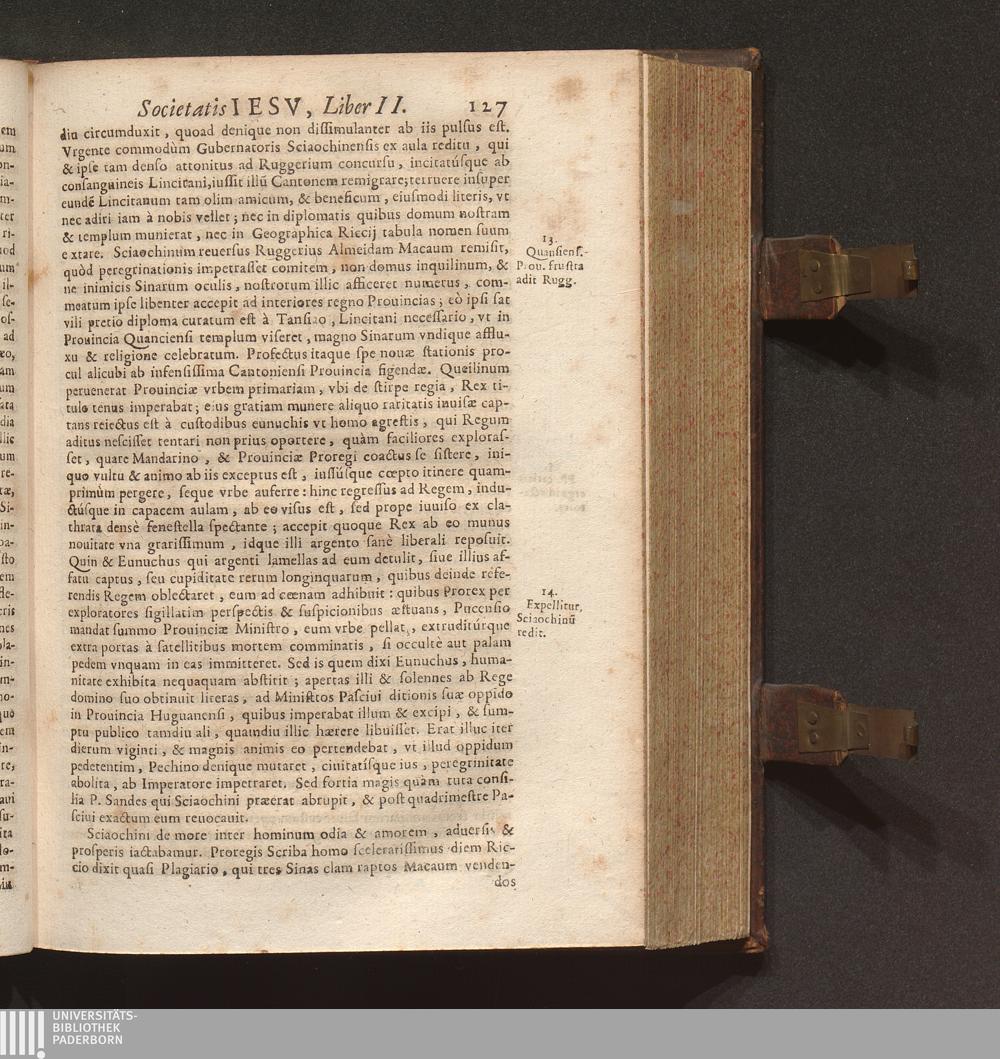 Societatis IESV, Liber II. 127
diu circumduxit, quoad denique non dissimulanter ab iis pulsus est.
Vrgente commodùm Gubernatoris Sciaochinensis ex aula reditu, qui
& ipse tam denso attonitus ad Ruggerium concursu, incitatúsque ab
consanguineis Lincitani, iussit illũ Cantonem remigrare; terruere insuper
eundẽ Lincitanum tam olim amicum, & beneficum, eiusmodi literis, vt
nec adiri iam à nobis vellet; nec in diplomatis quibus domum nostram
& templum munierat, nec in Geographica Riccij tabula nomen suum
extare. Sciaochinum reuersus Ruggerius Almeidam Macaum remisit,
quòd peregrinationis impetrasset comitem, non domus inquilinum, &
ne inimicis Sinarum oculis, nostrorum illic afficeret numerus, com-
meatum ipse libenter accepit ad interiores regno Prouincias; eò ipsi sat
vili pretio diploma curatum est à Tansiao, Lincitani necessario, vt in
Prouincia Quanciensi templum viseret, magno Sinarum vndique afflu-
xu & religione celebratum. Profectus itaque spe nouæ stationis pro-
cul alicubi ab infensissima Cantoniensi Prouincia figendæ. Queilinum
peruenerat Prouinciæ vrbem primariam, vbi de stirpe regia, Rex ti-
tulo tenus imperabat; eius gratiam munere aliquo raritatis inuisæ cap-
tans reiectus est à custodibus eunuchis vt homo agrestis, qui Regum
aditus nescisset tentari non prius oportere, quàm faciliores exploras-
set, quare Mandarino, & Prouinciæ Proregi coactus se sistere, ini-
quo vultu & animo ab iis exceptus est, iussúsque cœpto itinere quam-
primùm pergere, seque vrbe auferre: hinc regressus ad Regem, indu-
ctúsque in capacem aulam, ab eo visus est, sed prope iuuiso ex cla-
thrata densè fenestella spectante; accepit quoque Rex ab eo munus
nouitate vna gratissimum, idque illi argento sanè liberali reposuit.
Quin & Eunuchus qui argenti lamellas ad eum detulit, siue illius af-
fatu captus, seu cupiditate rerum longinquarum, quibus deinde refe-
rendis Regem oblectaret, eum ad cœnam adhibuit: quibus Prorex per
exploratores sigillatim perspectis & suspicionibus æstuans, Pucensio
mandat summo Prouinciæ Ministro, eum vrbe pellat, extruditúrque
extra portas à satellitibus mortem comminatis, si occultè aut palam
pedem vnquam in eas immitteret. Sed is quem dixi Eunuchus, huma-
nitate exhibita nequaquam abstitit; apertas illi & solennes ab Rege
domino suo obtinuit literas, ad Ministros Pasciui ditionis suæ oppido
in Prouincia Huguanensi, quibus imperabat illum & excipi, & sum-
ptu publico tamdiu ali, quamdiu illic hærere libuisset. Erat illuc iter
dierum viginti, & magnis animis eo pertendebat, vt illud oppidum
pedetentim, Pechino denique mutaret, ciuitatísque ius, peregrinitate
abolita, ab Imperatore impetraret. Sed fortia magis quàm tuta consi-
lia P. Sandes qui Sciaochini præerat abrupit, & post quadrimestre Pa-
sciui exactum eum reuocauit.
Sciaochini de more inter hominum odia & amorem, aduersis &
prosperis iactabamur. Proregis Scriba homo sceleratissimus diem Ric-
cio dixit quasi Plagiario, qui tres Sinas clam raptos Macaum venden-
dos
13.
Quansiens.
Prou. frustra
adit Rugg.
14.
Expellitur,
Sciaochinũ
redit.
UNIVERSITÄTS-
BIBLIOTHEK
PADERBORN